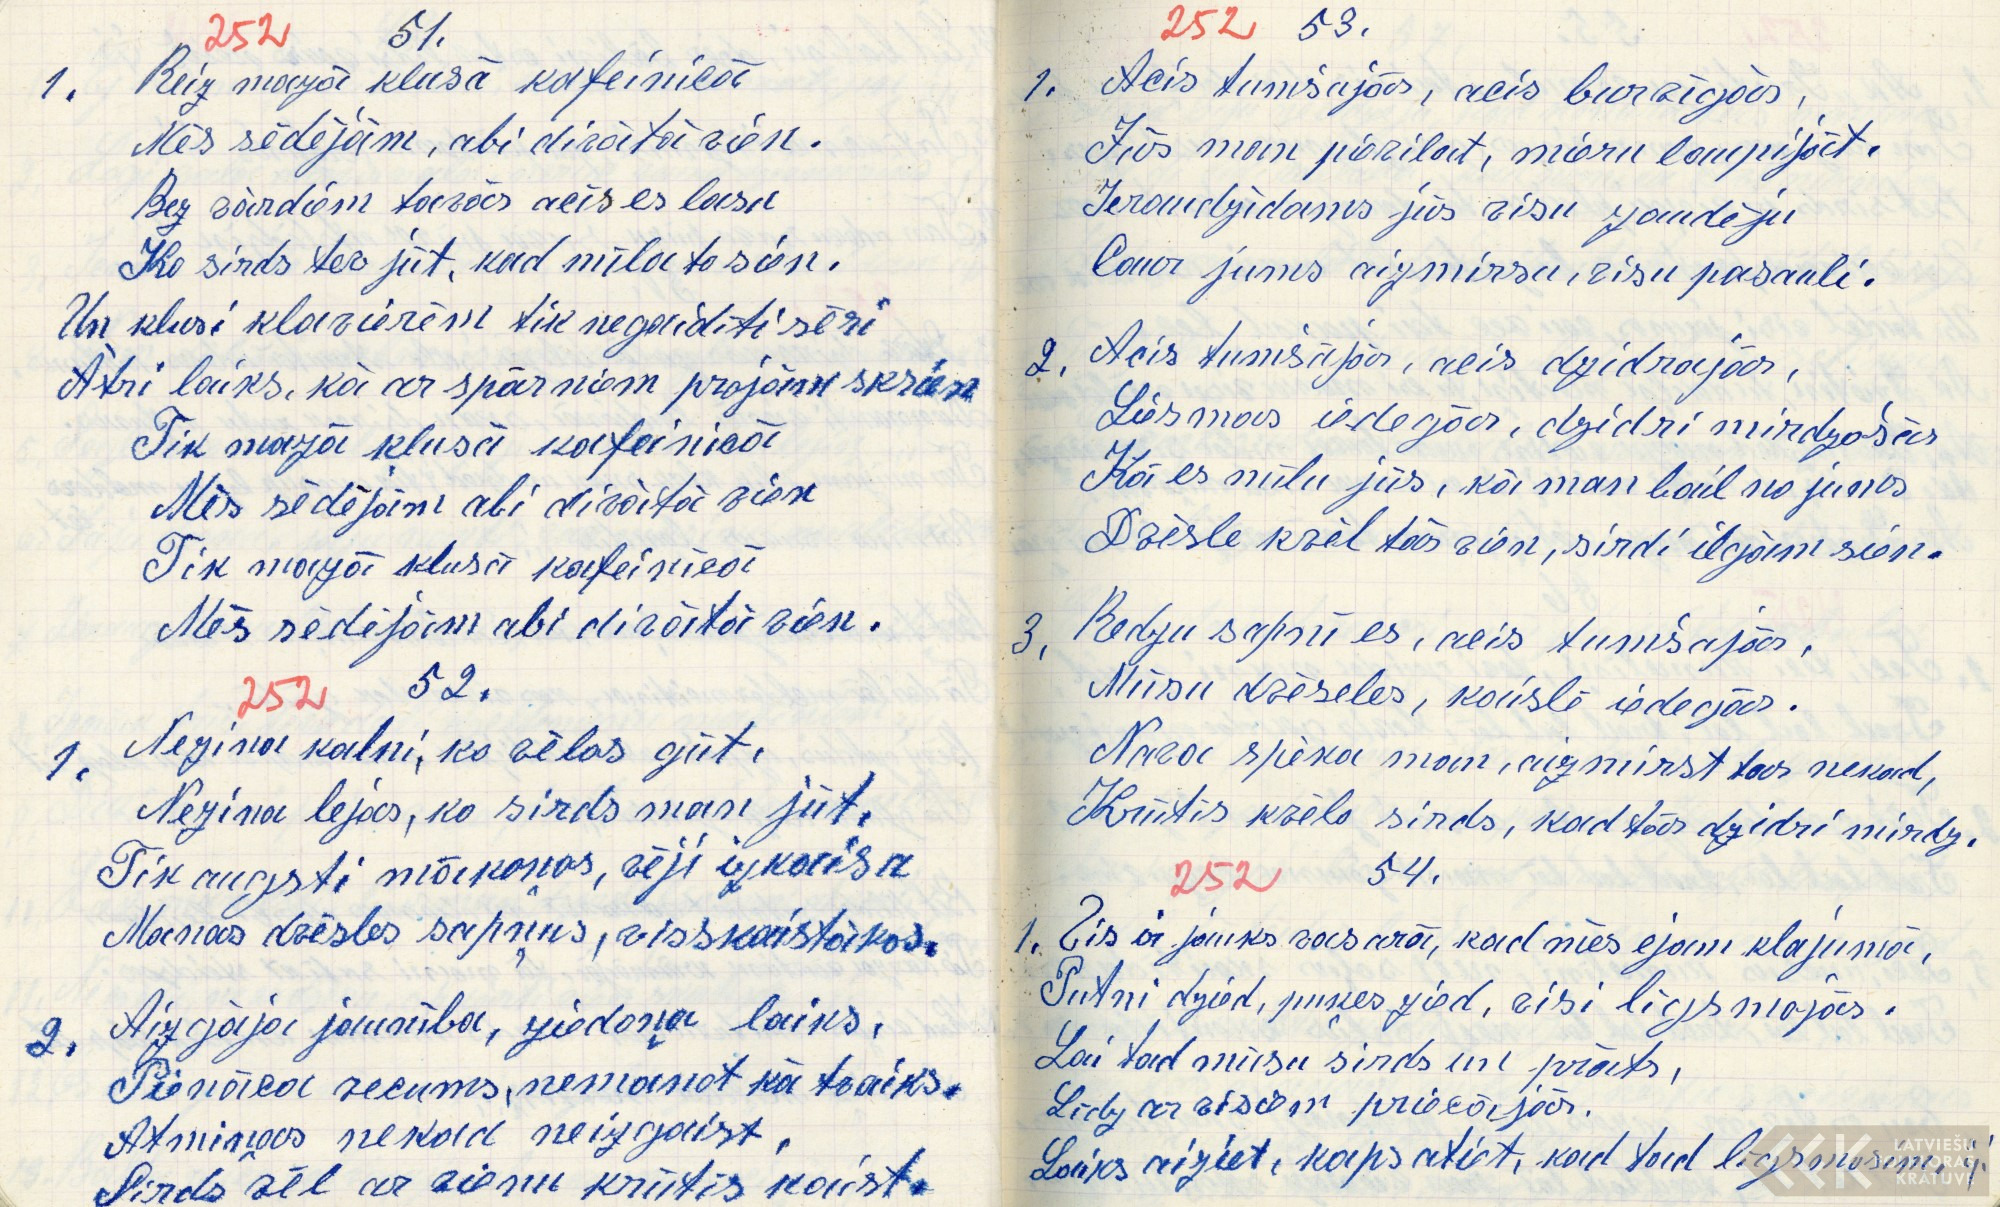 252 51.
1. Reiz mazā klusā kafeinicā
Mēs sēdējām, abi divātā vien.
Bez vārdiem tavās acīs es lasu
Ko sirds tev jūt, kad mīla to sien.
Un klusi klavierēm tik negaidīti sēri
Ātri laiks, kā ar spārniem projām skrien
Tik mazā klusā kafeinicā
Mēs sēdējām abi divātā vien
Tik mazā klusā kafeinīcā
Mēs sēdējām abi divātā vien.
252 52.
1. Nezina kalni, ko vēlos gūt,
Nezina lejas, ko sirds man jūt,
Tik augsti mākoņos, vēji izkaisa
Manas dvēsles sapņus, visskaistākos.
2. Aizgāja jaunība, ziedoņa laiks,
Pienāca vecums, nemanot kā tvaiks.
Atmiņas nekad neizgaist,
Sirds vēl ar vienu krūtīs kaist.
252 53.
1. Acis tumšajās, acis burvīgās,
Jūs man pievilat, mieru laupījāt.
Ieraudzīdams jūs visu zaudēju
Caur jums aizmirsu, visu pasauli.
2. Acis tumšājās, acis dzidrajās,
Liesmas iedegās, dzidri mirdzošās
Kā es mīlu jūs, kā man bail no jums
Dvēsle kvēl tās vien, sirdi ilgām sien.
3. Redzu sapnī es, acis tumšajās,
Mūsu dvēseles, kaislē iedegās.
Nava spēka man, aizmirst tas nekad,
Krūtīs kvēlo sirds, kad tās dzidri mirdz.
252 54.
1. Cis ir jauks vasarā, kad mēs ejam klajumā,
Putni dzied, puķes zied, visi līgsmojās.
Lai tad mūsu sirds un prāts,
Līdz ar visiem priecājās.
Laiks aiziet, kaps atiet, kad tad līgsmosim
LATVIEŠU
FOLKLORAS
KRĀTUVE